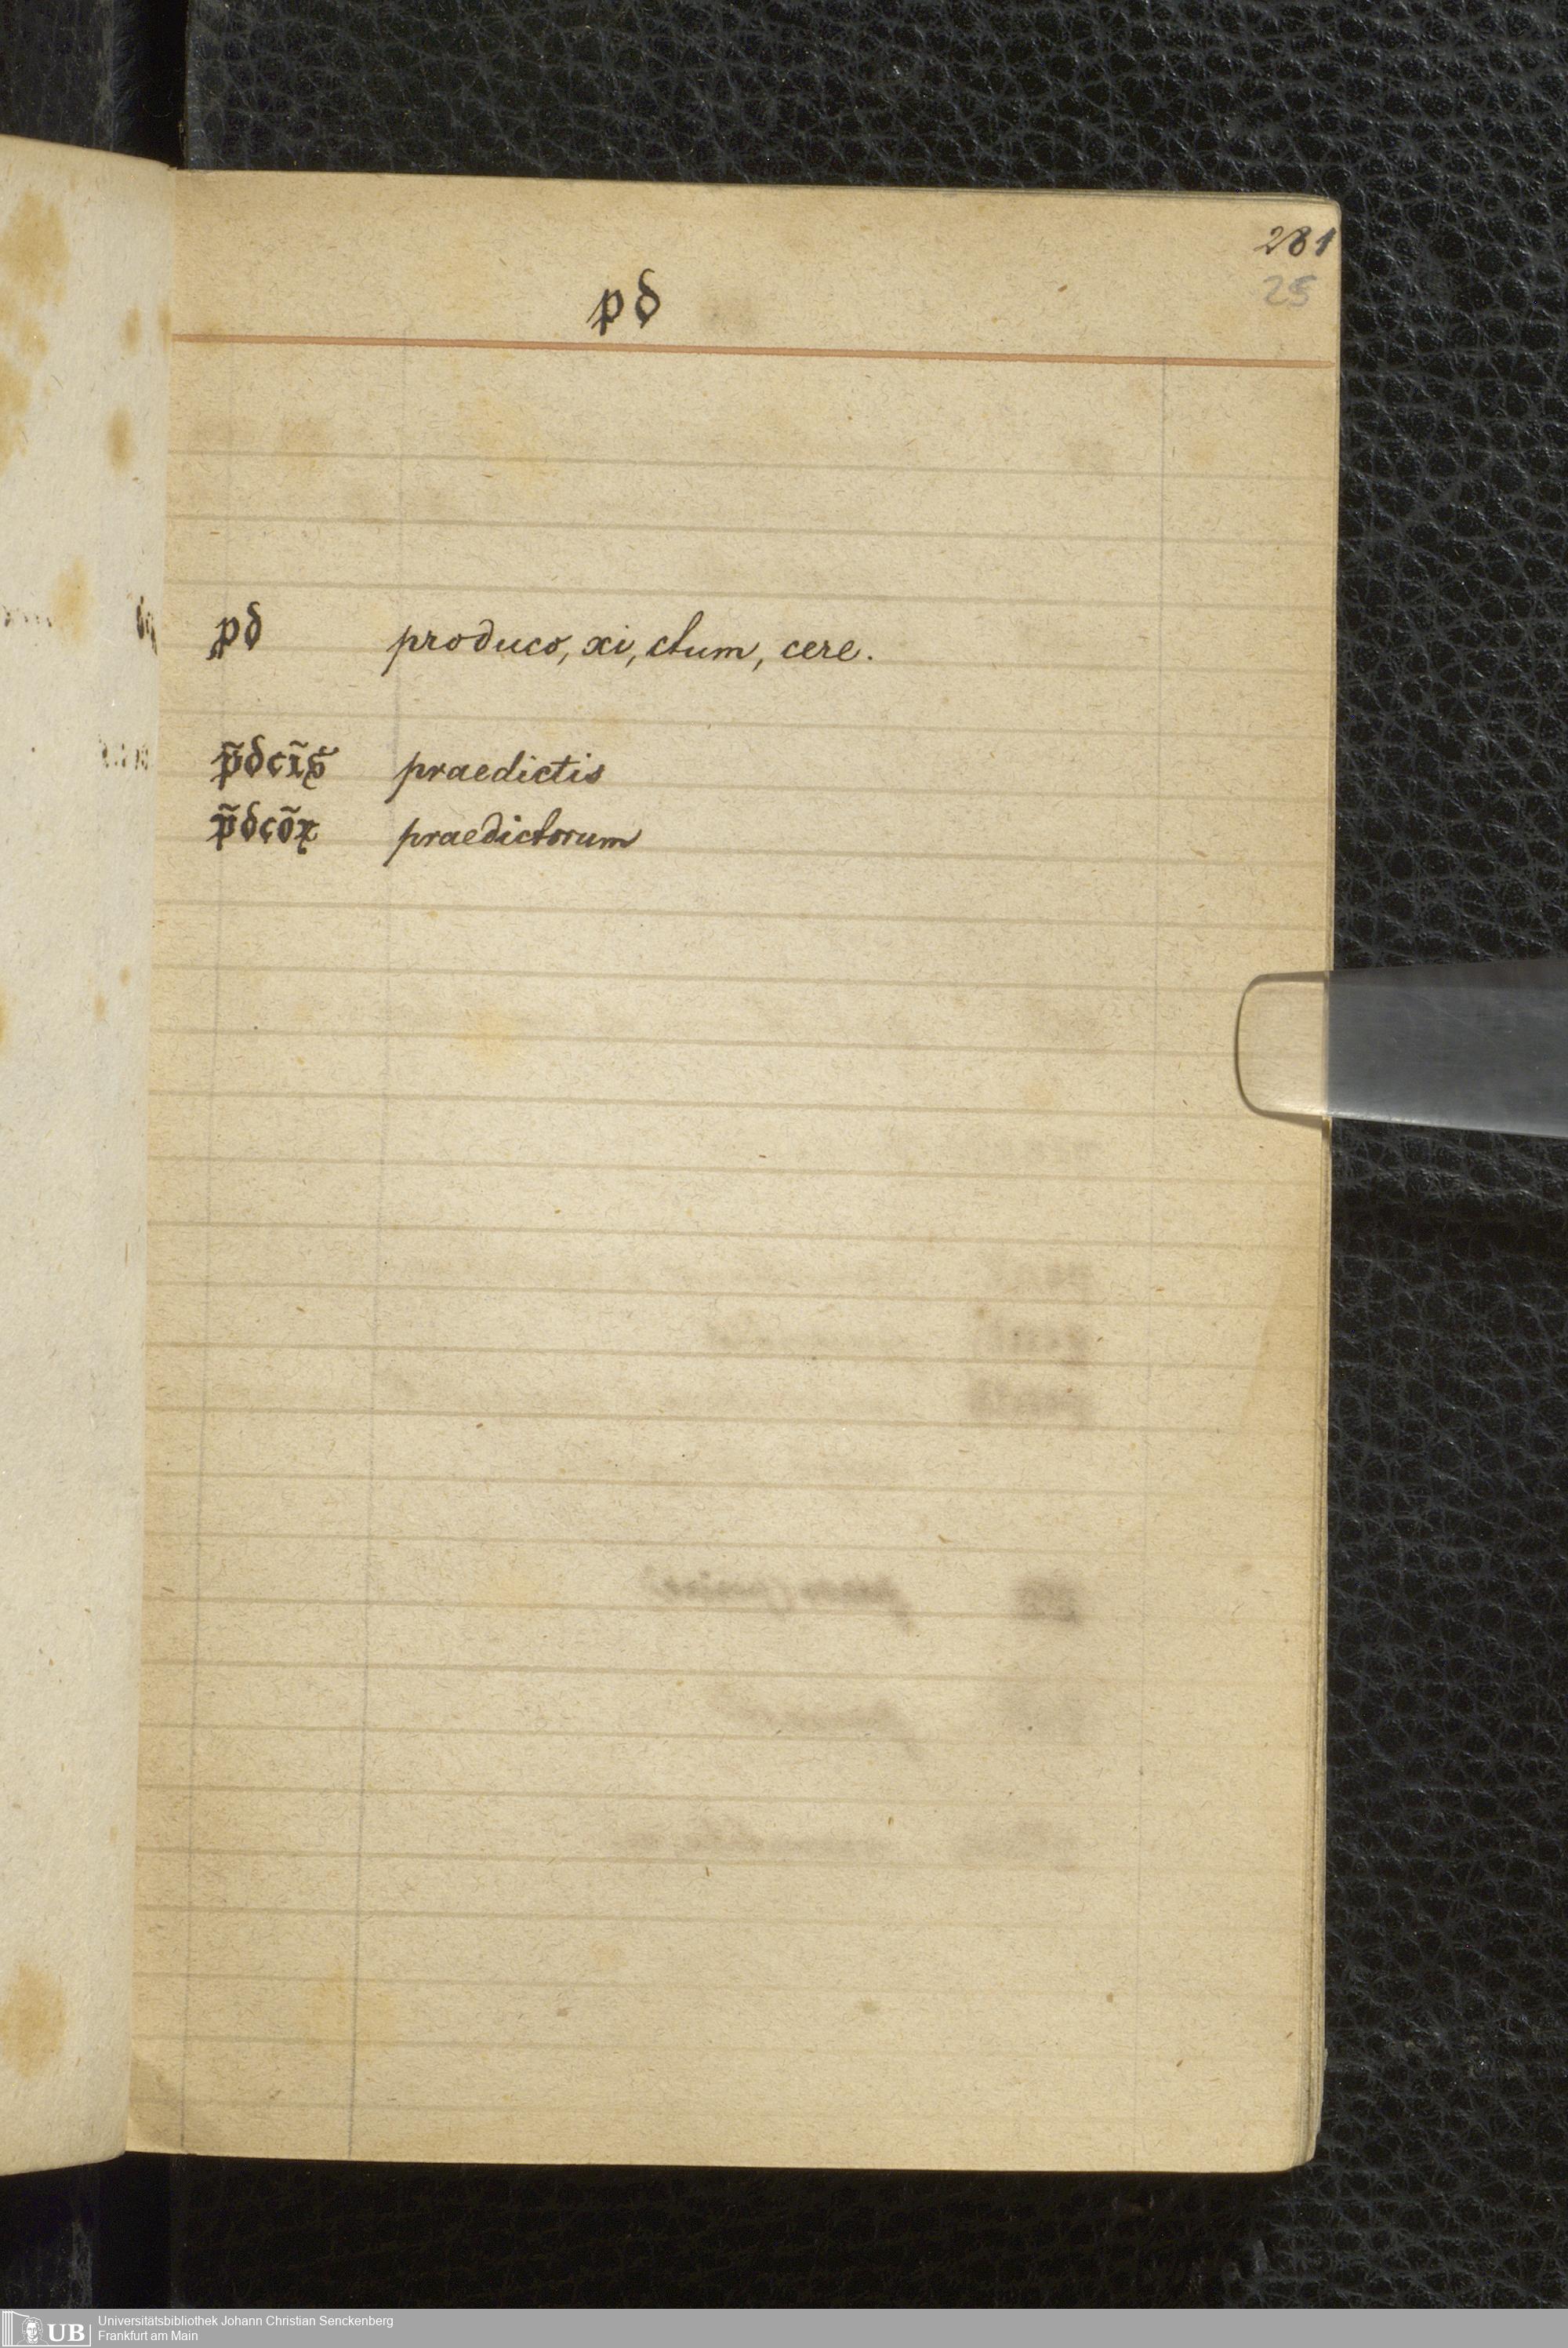 281
25
pd
pd produco, xi, ctum, cere.
p̄dcīs praedictis
p̄dcōꝝ praedictorum
UB
Universitätsbibliothek Johann Christian Senckenberg
Frankfurt am Main